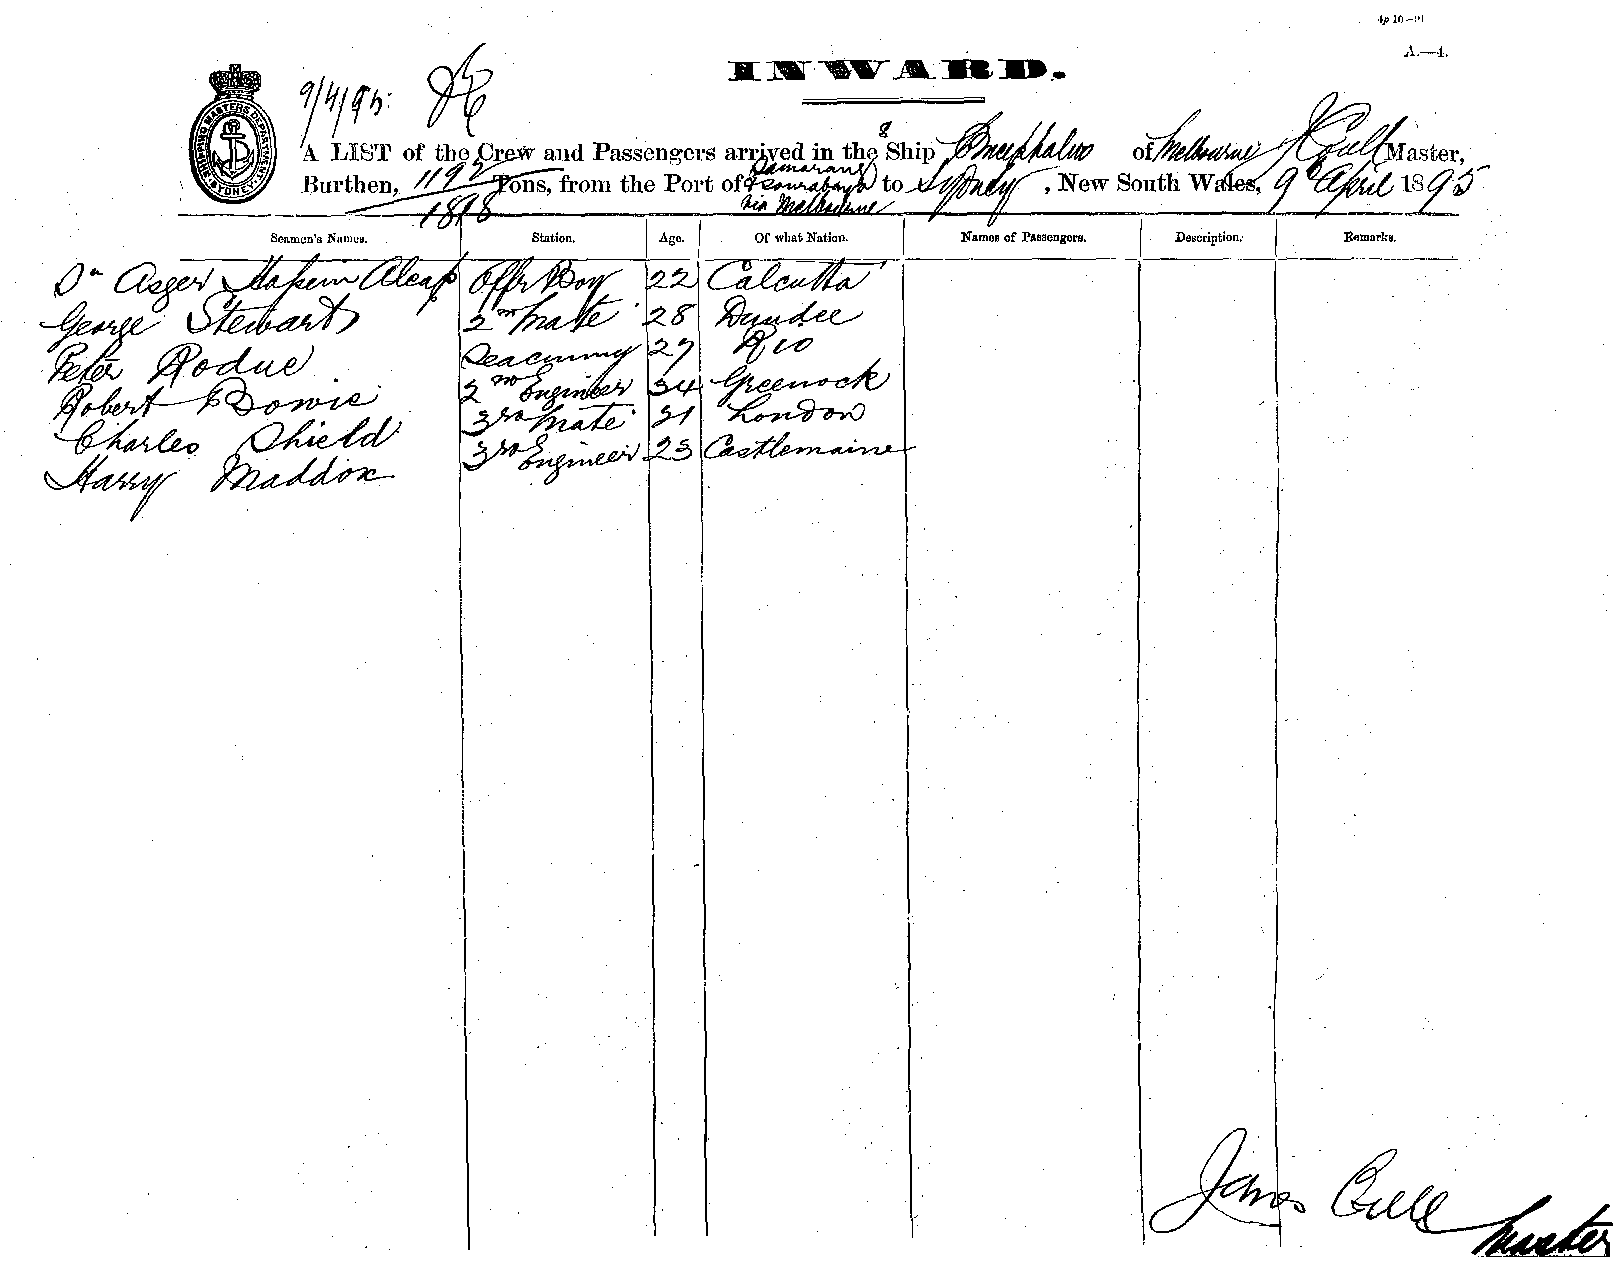 4p 10—91
A.—4.
INWARD.
9/4/95.
SHIPPING MASTERS DEPARTMENT SYDNEY
A LIST of the Crew and Passengers arrived in the S Ship Bucephalus of Melbourne J Cull Master,
Burthen, 1192 Tons, from the Port of Samarang & Sourabaya via Melbourne to Sydney, New South Wales, 9th April 1895
1818
Seamen's Names. Station. Age. Of what Nation. Names of Passengers. Description. Remarks.
Asger Offr Boy 22 Calcutta
George Stewart 2nd Mate 28 Dundee
Peter Rodue 27 Rio
Robert Bowie 2nd Engineer 34 Greenock
Charles Shield 3rd Mate 31 London
Harry Maddox 3rd Engineer 23 Castlemaine
James Cull
Master